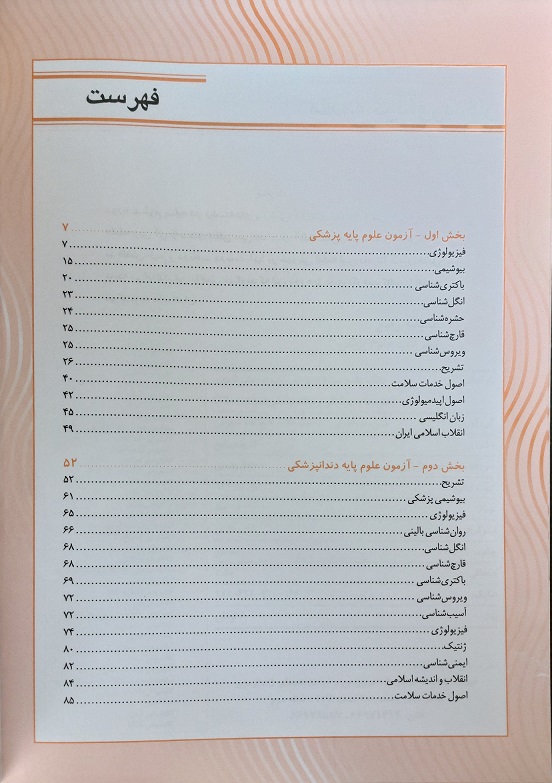 فهرست
بخش اول - آزمون علوم پایه پزشکی ........ ۷
فیزیولوژی ........ ۷
بیوشیمی ........ ۱۵
باکتری‌شناسی ........ ۲۰
انگل‌شناسی ........ ۲۳
حشره‌شناسی ........ ۲۴
قارچ‌شناسی ........ ۲۵
ویروس‌شناسی ........ ۲۵
تشریح ........ ۲۶
اصول خدمات سلامت ........ ۴۰
اصول اپیدمیولوژی ........ ۴۲
زبان انگلیسی ........ ۴۵
انقلاب اسلامی ایران ........ ۴۹
بخش دوم - آزمون علوم پایه دندانپزشکی ........ ۵۲
تشریح ........ ۵۲
بیوشیمی پزشکی ........ ۶۱
فیزیولوژی ........ ۶۵
روان‌شناسی بالینی ........ ۶۶
انگل‌شناسی ........ ۶۸
قارچ‌شناسی ........ ۶۸
باکتری‌شناسی ........ ۶۹
ویروس‌شناسی ........ ۷۲
آسیب‌شناسی ........ ۷۲
فیزیولوژی ........ ۷۴
ژنتیک ........ ۸۰
ایمنی‌شناسی ........ ۸۲
انقلاب و اندیشه اسلامی ........ ۸۴
اصول خدمات سلامت ........ ۸۵